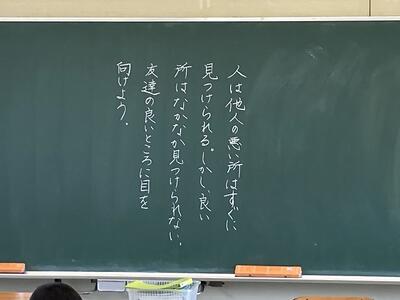 人は他人の悪い所はすぐに
見つけられる。しかし、良い
所はなかなか見つけられない。
友達の良いところに目を
向けよう。